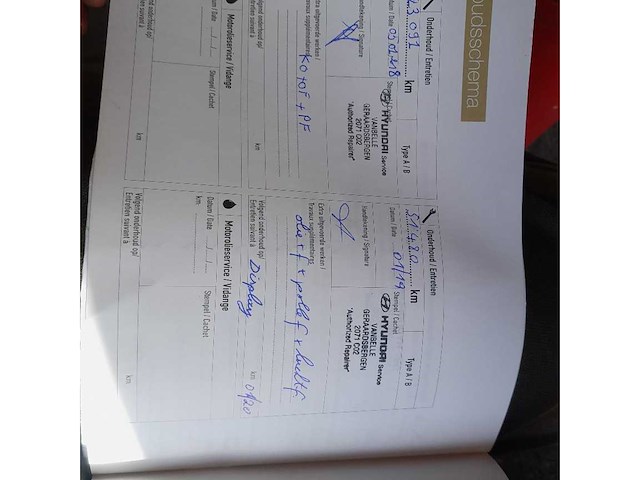 oudsschema
Onderhoud / Entretien
23.092 km
Type A / B
Datum / Date 05/02/18
Stempel / Cachet
HYUNDAI Service
VANBELLE
GERAARDSBERGEN
2071 C02
"Authorized Repairer"
Handtekening / Signature
Extra uitgevoerde werken /
Travaux supplémentaires
+ PF
Volgend onderhoud op/
Entretien suivant à
km
Motorolieservice / Vidange
Datum / Date
Stempel / Cachet
km
Volgend onderhoud op/
Entretien suivant à
km
Onderhoud / Entretien
51.480 km
Type A / B
Datum / Date 01/19
Stempel / Cachet
HYUNDAI Service
VANBELLE
GERAARDSBERGEN
2071 C02
"Authorized Repairer"
Handtekening / Signature
Extra uitgevoerde werken /
Travaux supplémentaires
+ pollf + luchtf
Volgend onderhoud op/
Entretien suivant à Display km 01/20
Motorolieservice / Vidange
Datum / Date
Stempel / Cachet
km
Volgend onderhoud op/
Entretien suivant à
km